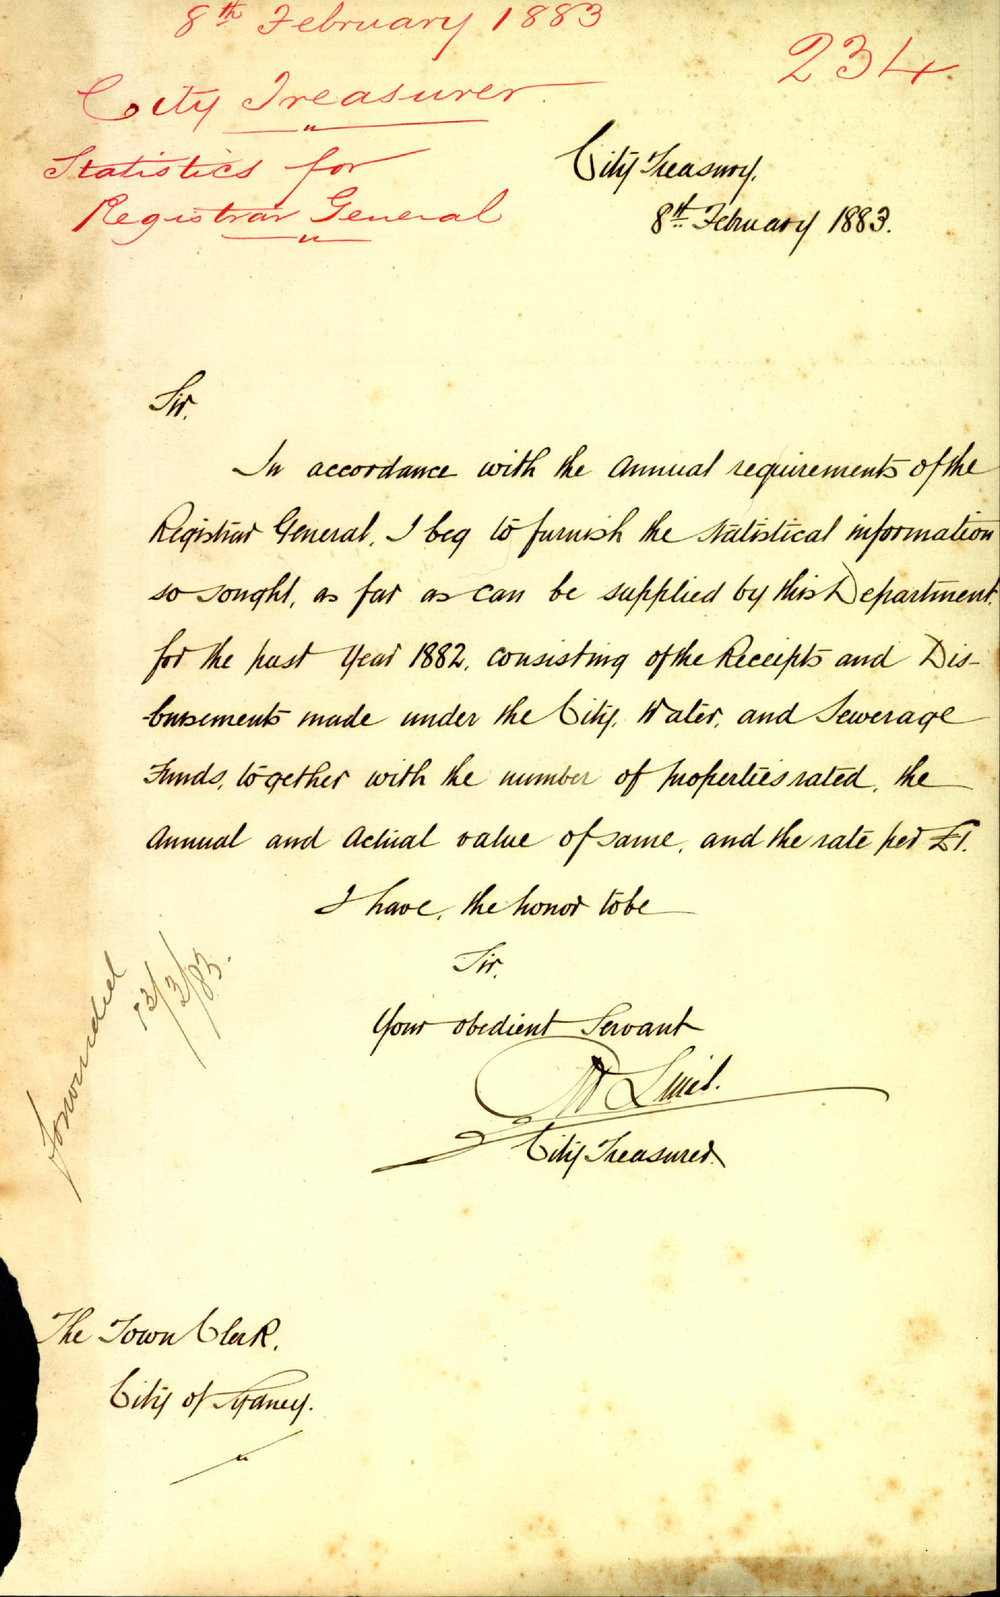 8th February 1883
234
City Treasurer
Statistics for
Registrar General
City Treasury,
8th February 1883.
Sir,
In accordance with the Annual requirements of the
Registrar General, I beg to furnish the statistical information
so sought, as far as can be supplied by this Department,
for the past Year 1882, consisting of the Receipts and Dis-
bursements made under the City, Water, and Sewerage
Funds, together with the number of properties rated, the
Annual and Actual value of same, and the rate per £1.
I have, the honor to be
Sir,
Your obedient Servant
City Treasurer
Forwarded
13/2/83.
The Town Clerk,
City of Sydney.